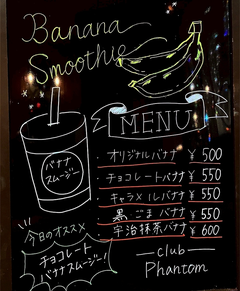 Banana
Smoothie
MENU
・オリジナルバナナ ¥500
・チョコレートバナナ ¥550
・キャラメルバナナ ¥550
・黒ごまバナナ ¥550
・宇治抹茶バナナ ¥600
バナナ
スムージー
今日のオススメ
チョコレート
バナナスムージー!
—club—
Phantom